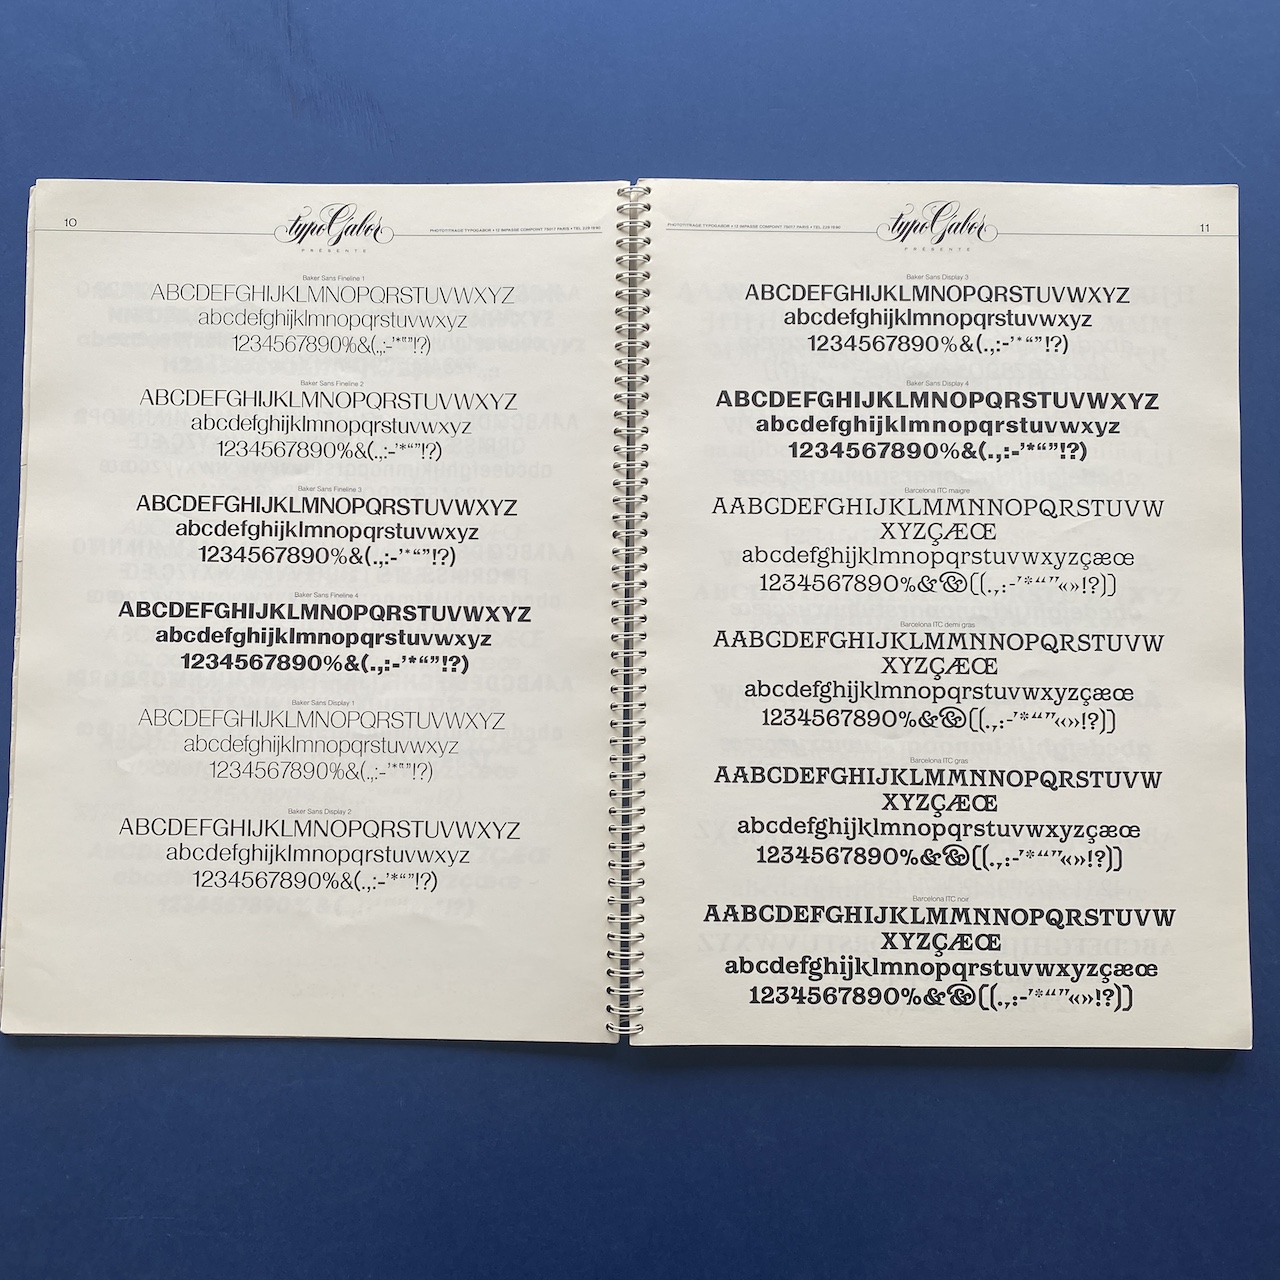 10
typoGabor
PRÉSENTE
PHOTOTITRAGE TYPOGABOR • 12 IMPASSE COMPOINT 75017 PARIS • TEL 229 18 90
Baker Sans Fineline 1
ABCDEFGHIJKLMNOPQRSTUVWXYZ
abcdefghijklmnopqrstuvwxyz
1234567890%&(.,:-'*“”!?)
Baker Sans Fineline 2
ABCDEFGHIJKLMNOPQRSTUVWXYZ
abcdefghijklmnopqrstuvwxyz
1234567890%&(.,:-'*“”!?)
Baker Sans Fineline 3
ABCDEFGHIJKLMNOPQRSTUVWXYZ
abcdefghijklmnopqrstuvwxyz
1234567890%&(.,:-'*“”!?)
Baker Sans Fineline 4
ABCDEFGHIJKLMNOPQRSTUVWXYZ
abcdefghijklmnopqrstuvwxyz
1234567890%&(.,:-'*“”!?)
Baker Sans Display 1
ABCDEFGHIJKLMNOPQRSTUVWXYZ
abcdefghijklmnopqrstuvwxyz
1234567890%&(.,:-'*“”!?)
Baker Sans Display 2
ABCDEFGHIJKLMNOPQRSTUVWXYZ
abcdefghijklmnopqrstuvwxyz
1234567890%&(.,:-'*“”!?)
PHOTOTITRAGE TYPOGABOR • 12 IMPASSE COMPOINT 75017 PARIS • TEL 229 18 90
typoGabor
PRÉSENTE
11
Baker Sans Display 3
ABCDEFGHIJKLMNOPQRSTUVWXYZ
abcdefghijklmnopqrstuvwxyz
1234567890%&(.,:-'*“”!?)
Baker Sans Display 4
ABCDEFGHIJKLMNOPQRSTUVWXYZ
abcdefghijklmnopqrstuvwxyz
1234567890%&(.,:-'*“”!?)
Barcelona ITC maigre
AABCDEFGHIJKLMMNNOPQRSTUVW
XYZÇÆŒ
abcdefghijklmnopqrstuvwxyzçæœ
12344567890%&&[(.,:-'*“”«»!?)]
Barcelona ITC demi gras
AABCDEFGHIJKLMMNNOPQRSTUVW
XYZÇÆŒ
abcdefghijklmnopqrstuvwxyzçæœ
12344567890%&&[(.,:-'*“”«»!?)]
Barcelona ITC gras
AABCDEFGHIJKLMMNNOPQRSTUVW
XYZÇÆŒ
abcdefghijklmnopqrstuvwxyzçæœ
12344567890%&&[(.,:-'*“”«»!?)]
Barcelona ITC noir
AABCDEFGHIJKLMMNNOPQRSTUVW
XYZÇÆŒ
abcdefghijklmnopqrstuvwxyzçæœ
12344567890%&&[(.,:-'*“”«»!?)]